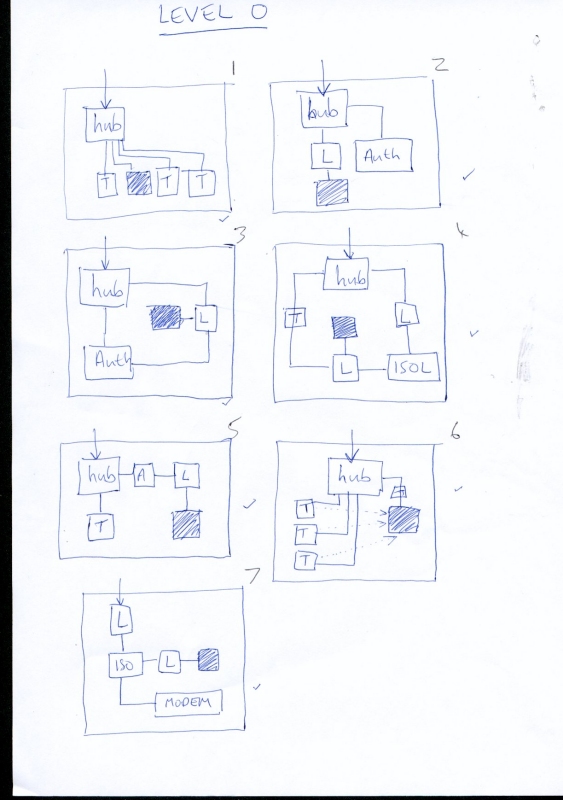 LEVEL 0
1
hub
T T T
2
hub
L Auth
3
hub
L
Auth
4
hub
T L
L ISOL
5
hub A L
T
6
hub
T
T
T
7
L
ISO L
MODEM